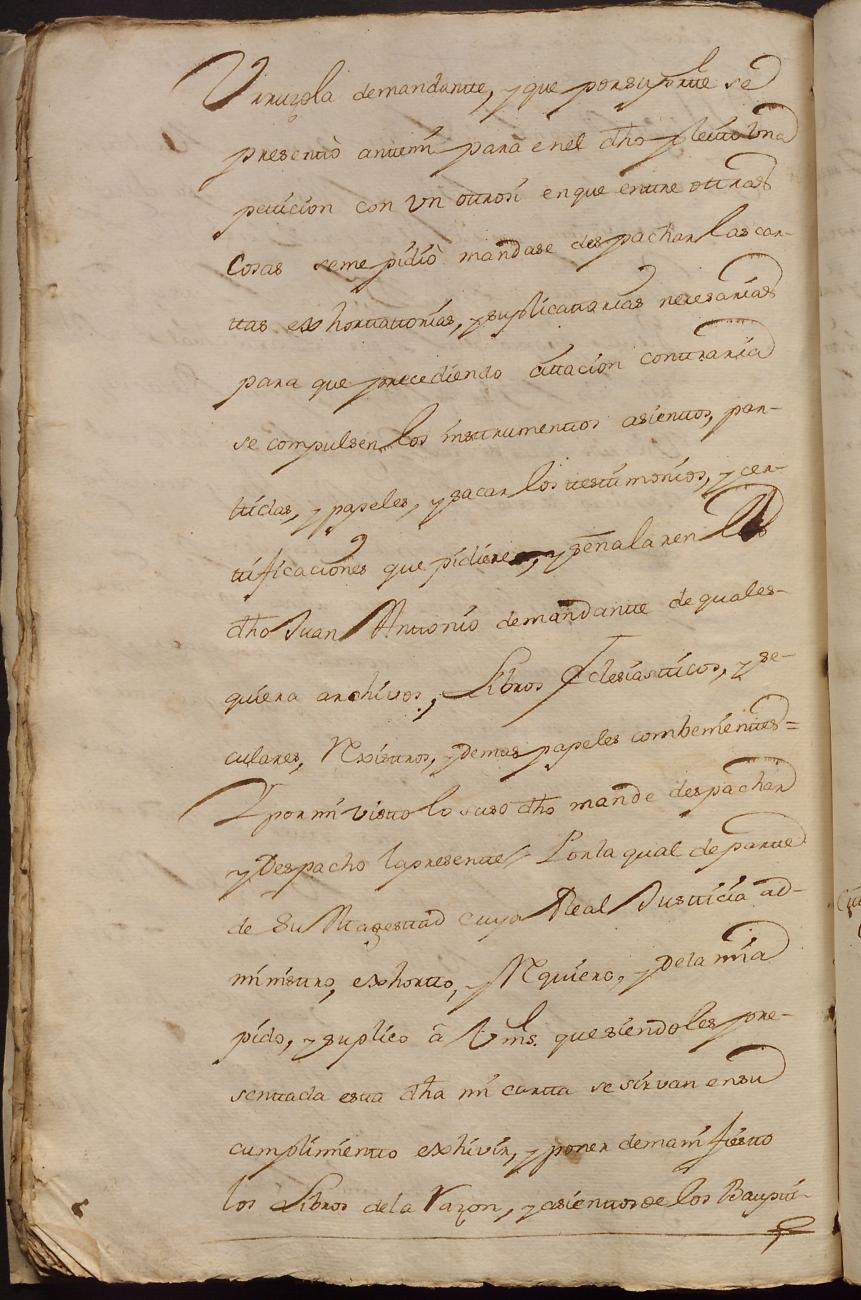 Urruzola demandante, y que por su parte se
presentò antemi para enel dho pleito Una
peticion con Un ottrosi en que entre ottras
Cosas seme pidiò mandase despachar las car-
ttas exhortattorias, y suplicattorias nezesarias
para que precediendo cittacion conttraria
se compulsen los insttrumenttos asienttos, par-
tidas, y papeles, y sacar los testimonios, y cer-
tificaciones que pidiere, y señalaren
dho Juan Antonio demandante de quales-
quiera archivos, Libros Eclesiasticos, y se-
culares, Rexistros, y Demas papeles combenientes=
Y por mi visto lo suso dho mande despachar
y Despacho la presente Por la qual de parte
de Su Magestad cuya Real Justicia ad-
ministro, exhorto, y Requiero, y Dela mia
pido, y suplico â Vms. que siendoles pre-
sentada esta dha mi cartta se sirvan en su
cumplimiento exhivir, y poner de manifiesto
los Libros dela Razon, y asienttos de los Baupti-